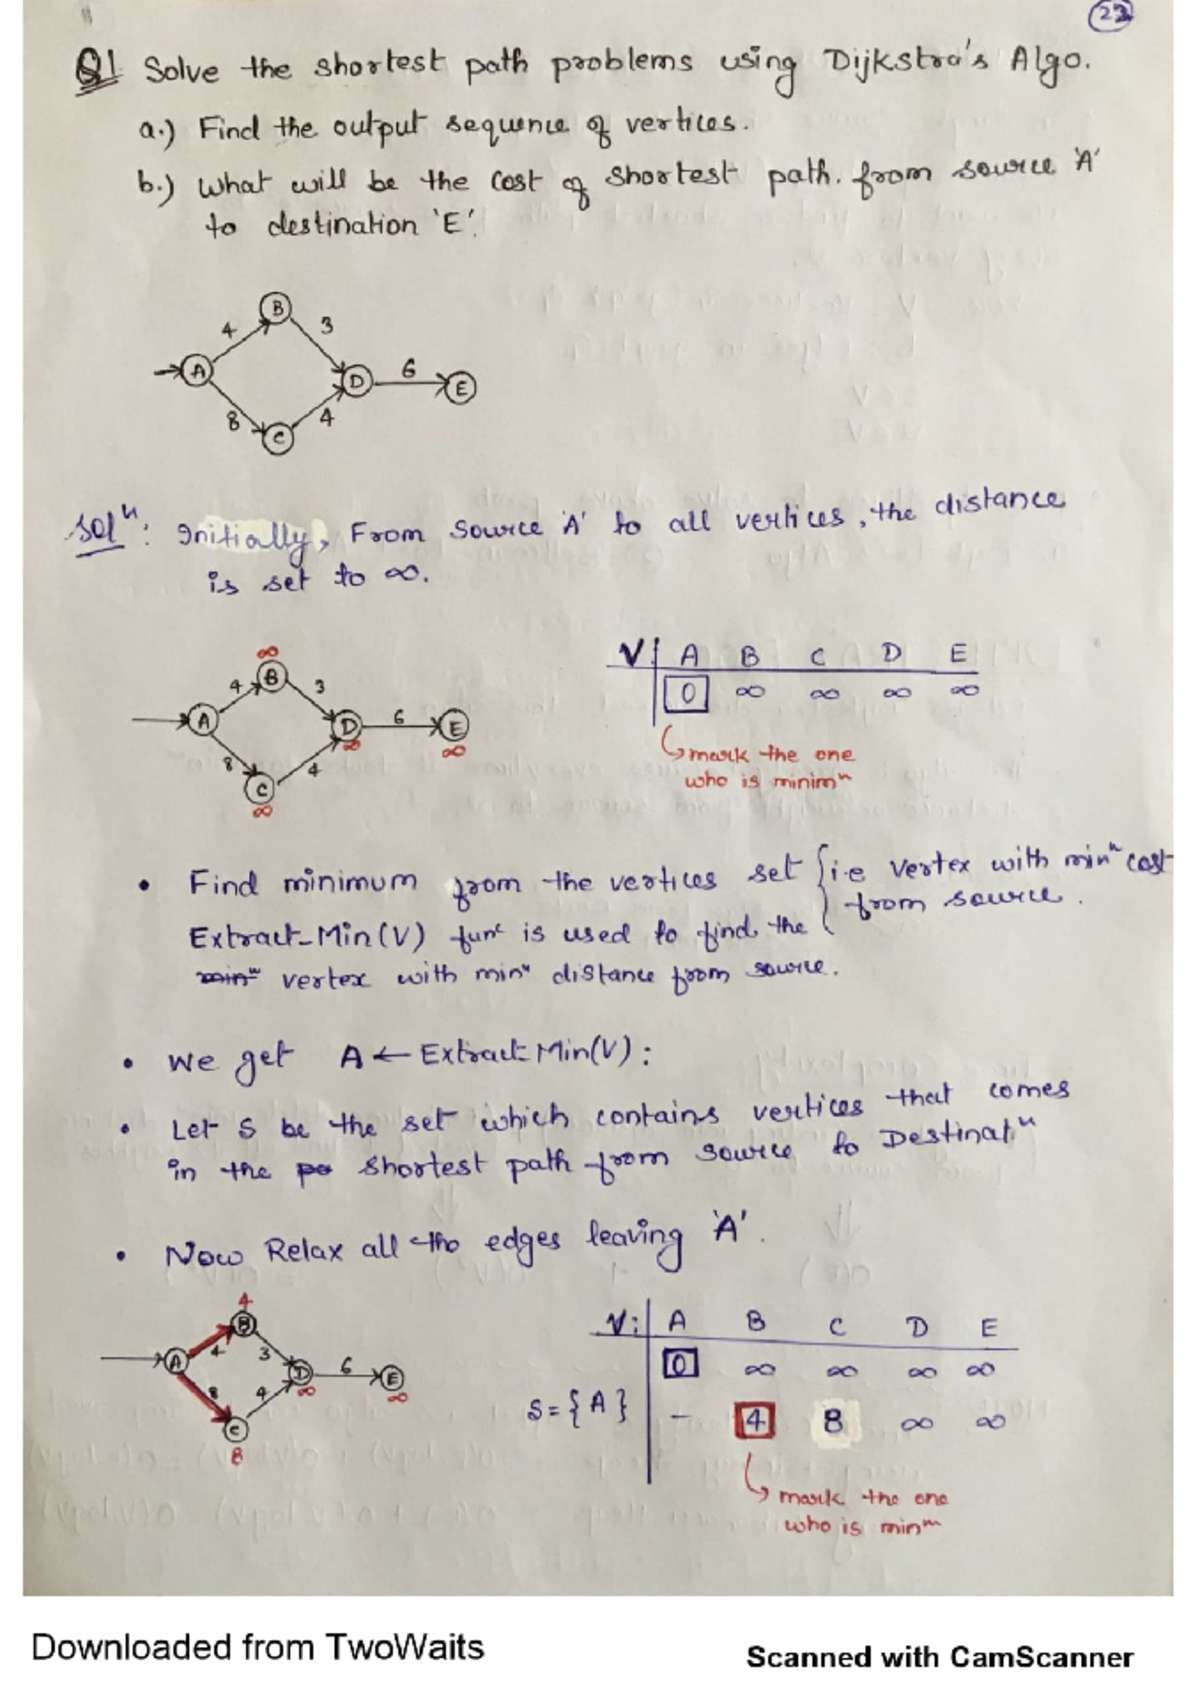 22
Q1 Solve the shortest path problems using Dijkstra's Algo.
a.) Find the output sequence of vertices.
b.) What will be the cost of shortest path. from source 'A'
to destination 'E'.
B
4 3
A D 6 E
8 4
C
Solⁿ: Initially, From source 'A' to all vertices, the distance
is set to ∞.
∞
B
4 3
A D 6 E
∞ ∞
8 4
C
∞
V A B C D E
0 ∞ ∞ ∞ ∞
mark the one
who is minimᵐ
• Find minimum from the vertices set {i.e vertex with minᵐ cost
from source.
Extract-Min(V) funᶜ is used to find the
vertex with minᵐ distance from source.
• We get A ← Extract-Min(V):
• Let S be the set which contains vertices that comes
in the shortest path from source to Destinatⁿ
• Now Relax all the edges leaving 'A'.
4
B
4 3
A D 6 E
∞ ∞
8 4
C
8
V: A B C D E
0 ∞ ∞ ∞ ∞
S = {A} - 4 8 ∞ ∞
mark the one
who is minᵐ
Downloaded from TwoWaits
Scanned with CamScanner